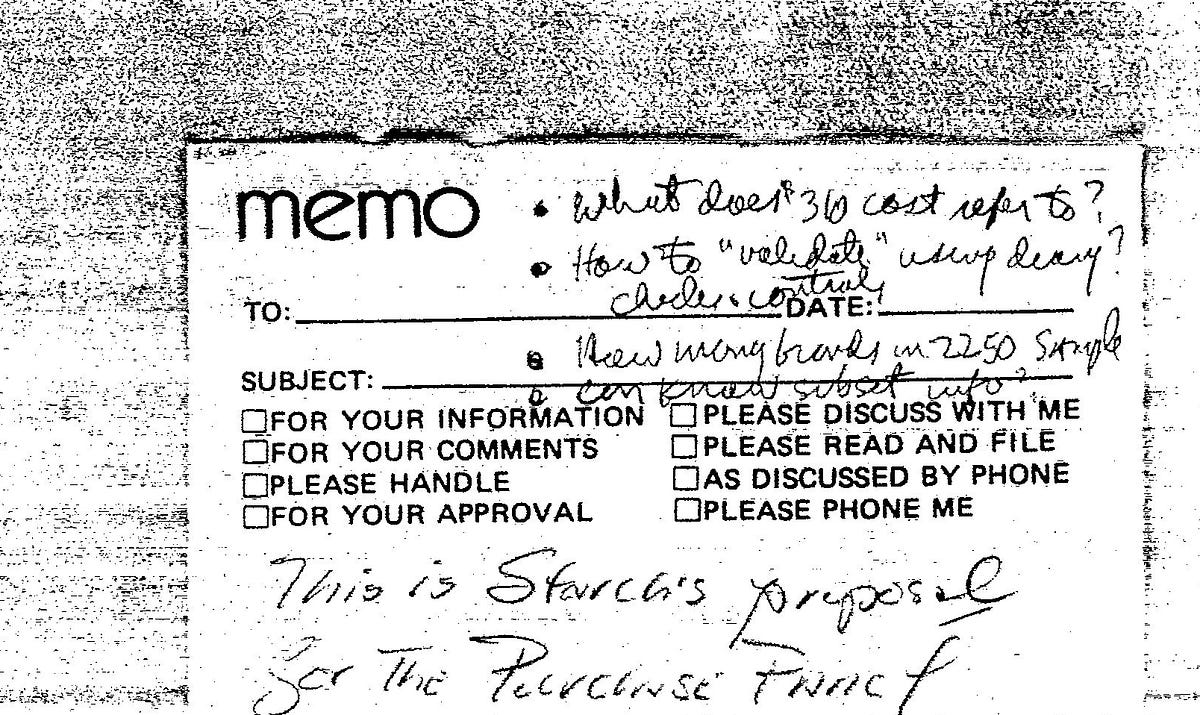 memo
• What does $36 cost refer to?
• How to "validate" using diary?
TO: controls DATE:
• How many brands in 2250 sample
SUBJECT:
• can know subset info?
☐ FOR YOUR INFORMATION ☐ PLEASE DISCUSS WITH ME
☐ FOR YOUR COMMENTS ☐ PLEASE READ AND FILE
☐ PLEASE HANDLE ☐ AS DISCUSSED BY PHONE
☐ FOR YOUR APPROVAL ☐ PLEASE PHONE ME
This is Starch's proposal
for The Purchase